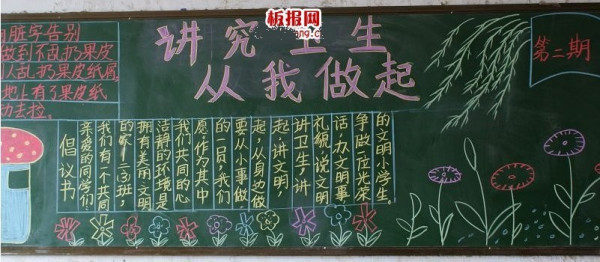 板报网
讲究卫生
从我做起
第二期
脏字告别
做到不乱扔果皮
乱扔果皮纸屑
地上有了果皮纸
动去捡。
倡议书
亲爱的同学们
我们有一个共同
的家一二(3)班,
拥有美丽文明
洁静的环境是
我们共同的心
愿作为其中
的一员,我们
要从小事做
起,从身边做
起,讲文明,
讲卫生,讲
礼貌,说文明
话,办文明事
争做一位光荣
的文明小学生。